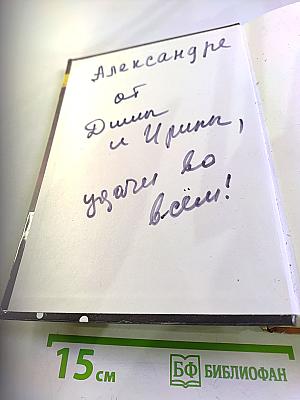 Александре
от
Димы
и Ирины,
удачи во
всём!
15 см
БФ БИБЛИОФАН